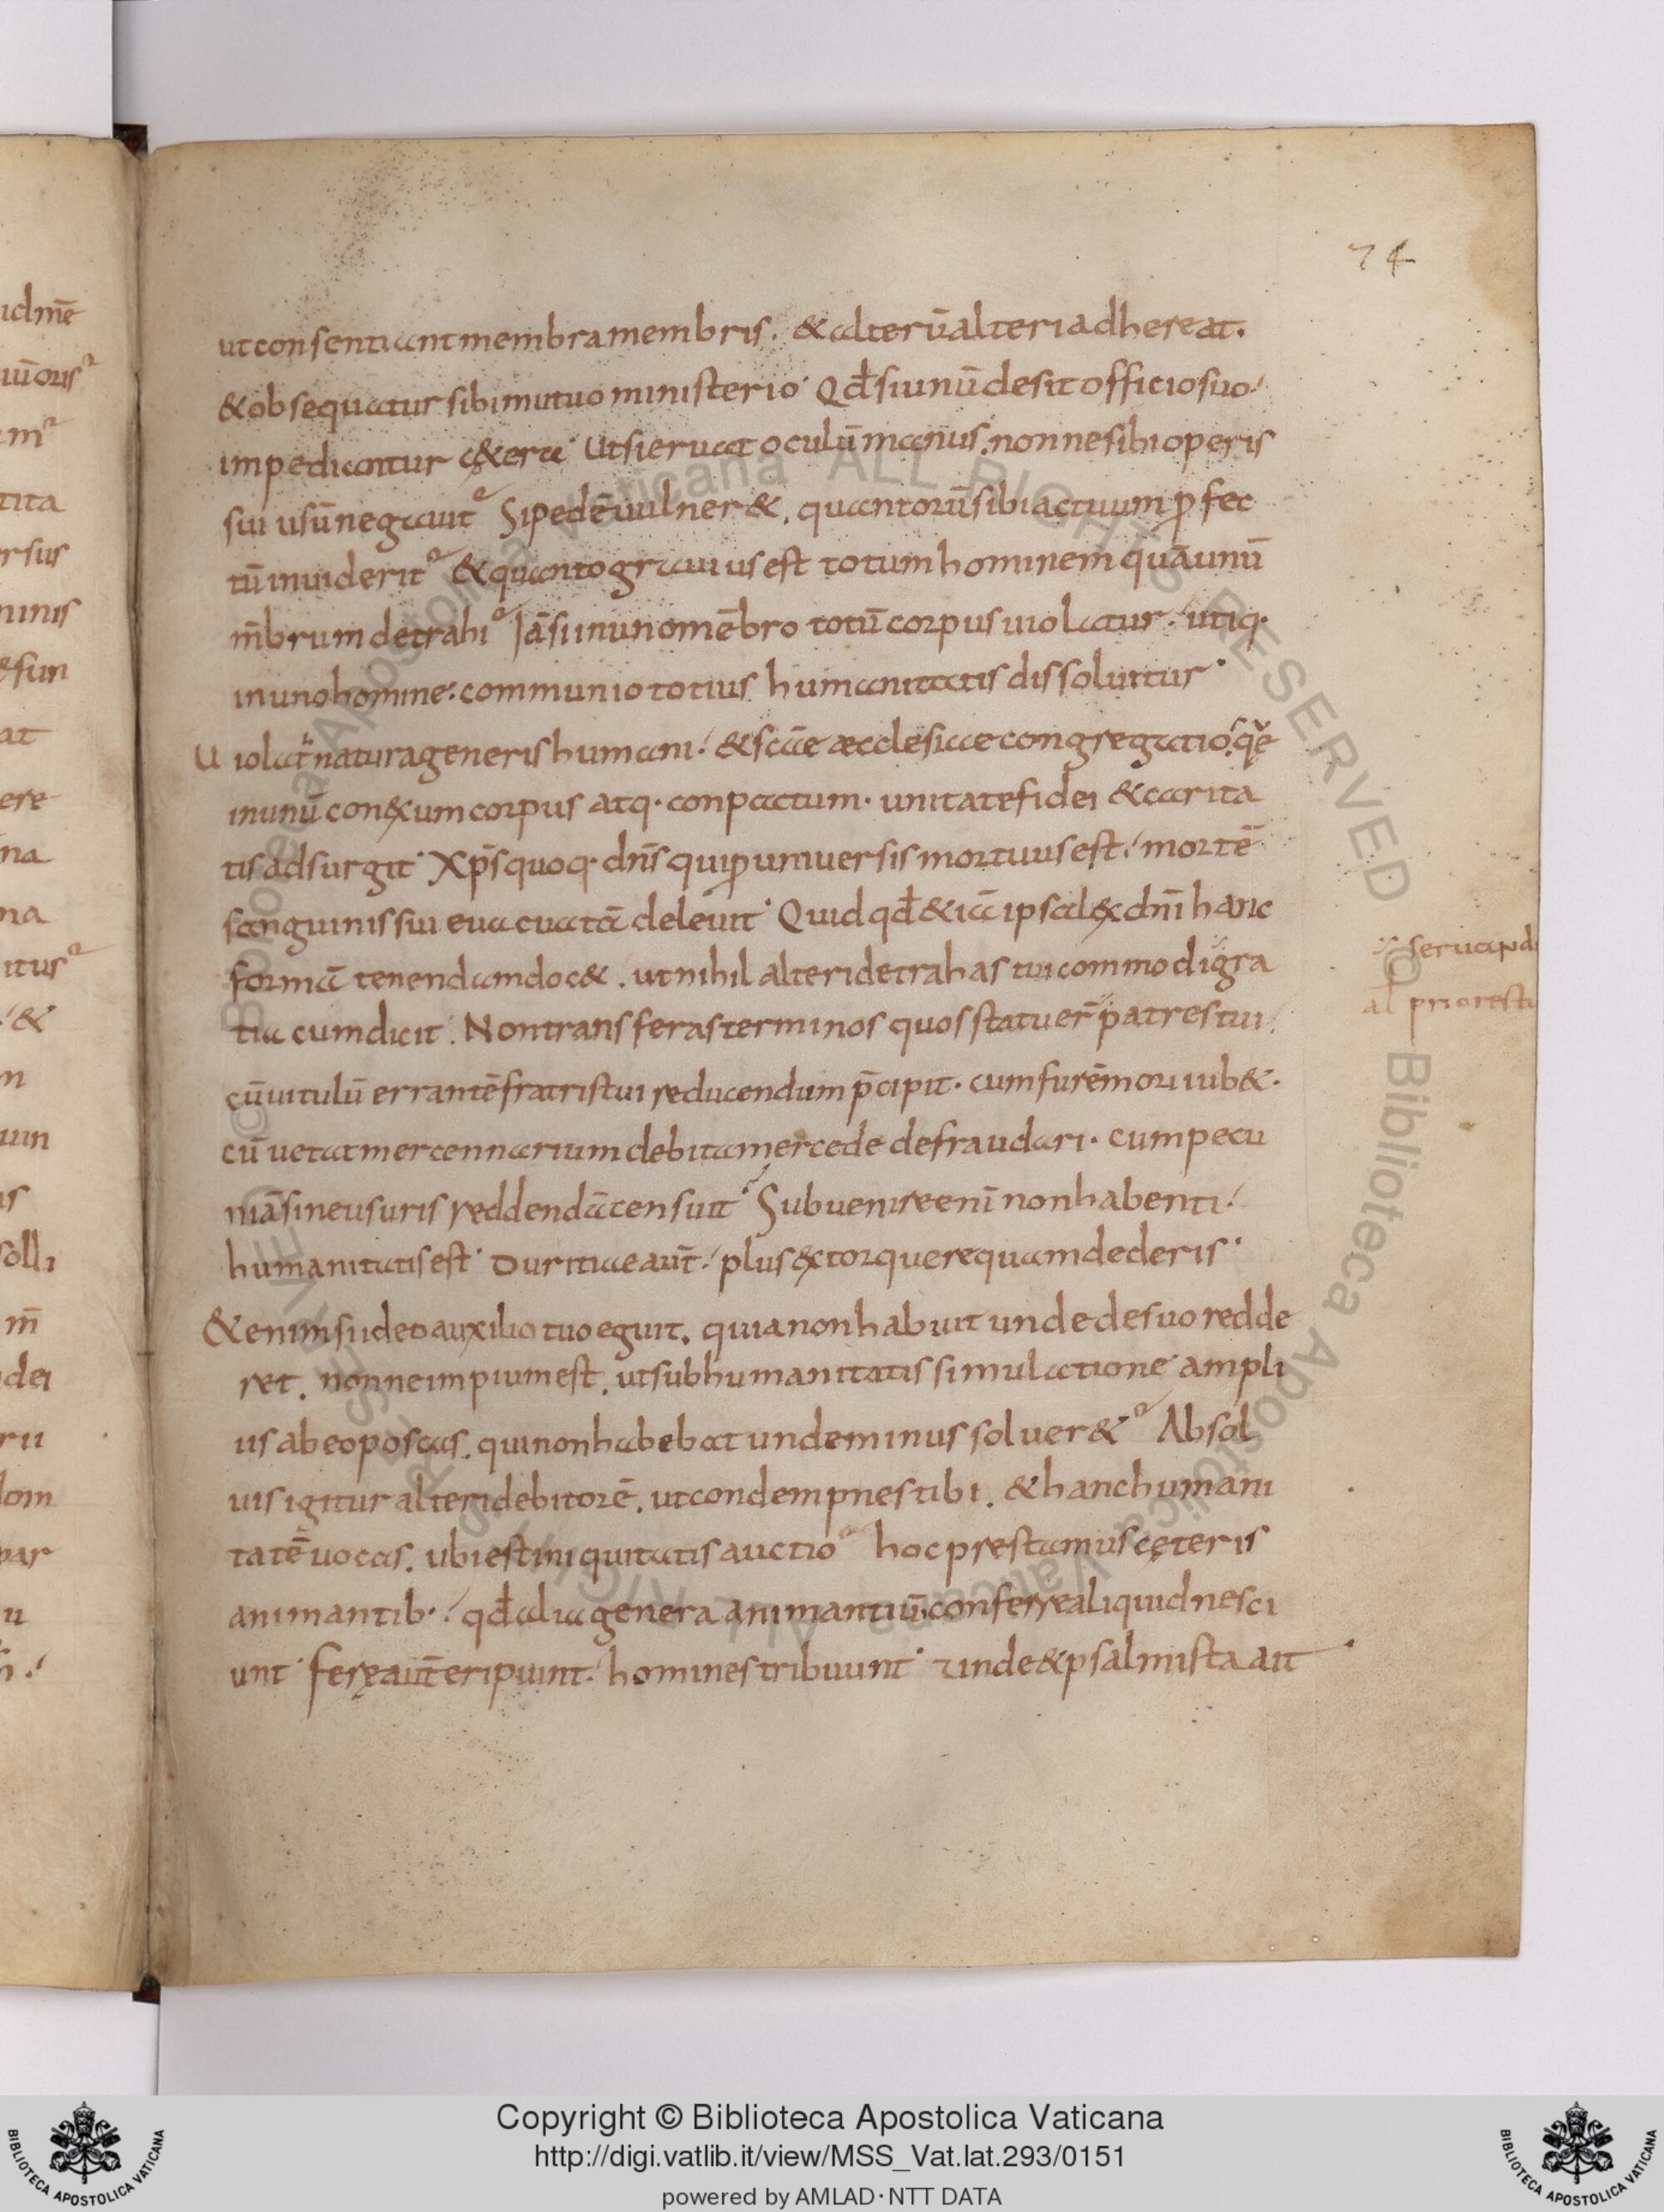 74
ut consentiant membra membris. & alterū alteri adhereat.
& obsequatur sibi mutuo ministerio. Qđ si unū desit officio suo
impediantur c&era. Ut si eruat oculū manus. nonne sibi operis
sui usū negauit Si pedē uulner&. quantorū sibi actuum ꝓfec
tū inuiderit & quanto grauius est totum hominem quā unū
m̄brum detrahi Iā si in uno mēbro totū corpus uiolatur. utiq.
in uno homine. communio totius humanitatis dissoluitur.
Uiolat̄ natura generis humani. & sc̄ae æcclesiae congregatio. quę
in unū conexum corpus atq. conpactum. unitate fidei & carita
tis adsurgit. Xp̄s quoq. dn̄s qui ꝓ uniuersis mortuus est. mortē
sanguinis sui euacuatā deleuit. Quid qđ & iā ipsa lex dn̄i hanc
formā tenendam doc&. ut nihil alteri detrahas tui commodi gra
tia cum dicit. Non transferas terminos quos statuer̄ patres tui.
cū uitulū errantē fratris tui reducendum p̄cipit. cum furē mori iub&.
cū uetat mercennarium debita mercede defraudari. cum pecu
niā sine usuris reddendā censuit Subuenire enī non habenti.
humanitatis est. Duritiae aut̄. plus extorquere quam dederis.
&enim si ideo auxilio tuo eguit. quia non habuit unde de suo redde
ret. nonne impium est. ut sub humanitatis simulatione ampli
us ab eo poscas. qui non habebat unde minus soluer& Absol
uis igitur alteri debitorē. ut condempnes tibi. & hanc humani
tatē uocas. ubi est iniquitatis auctio hoc prestamus cęteris
animantib.. qđ alia genera animantiū conferre aliquid nesci
unt. ferę aut̄ eripiunt. homines tribuunt. Unde & psalmista ait
seruand
al priores tu
idmē
uioris
m
tita
rsus
ninis
at
ere
na
na
itus
&
n
uin
is
solli
m̄
dei
rii
lom
par
u
Copyright © Biblioteca Apostolica Vaticana
http://digi.vatlib.it/view/MSS_Vat.lat.293/0151
powered by AMLAD·NTT DATA
BIBLIOTECA APOSTOLICA VATICANA
BIBLIOTECA APOSTOLICA VATICANA
© Biblioteca Apostolica Vaticana ALL RIGHTS RESERVED
© Biblioteca Apostolica Vaticana ALL RIGHTS RESERVED